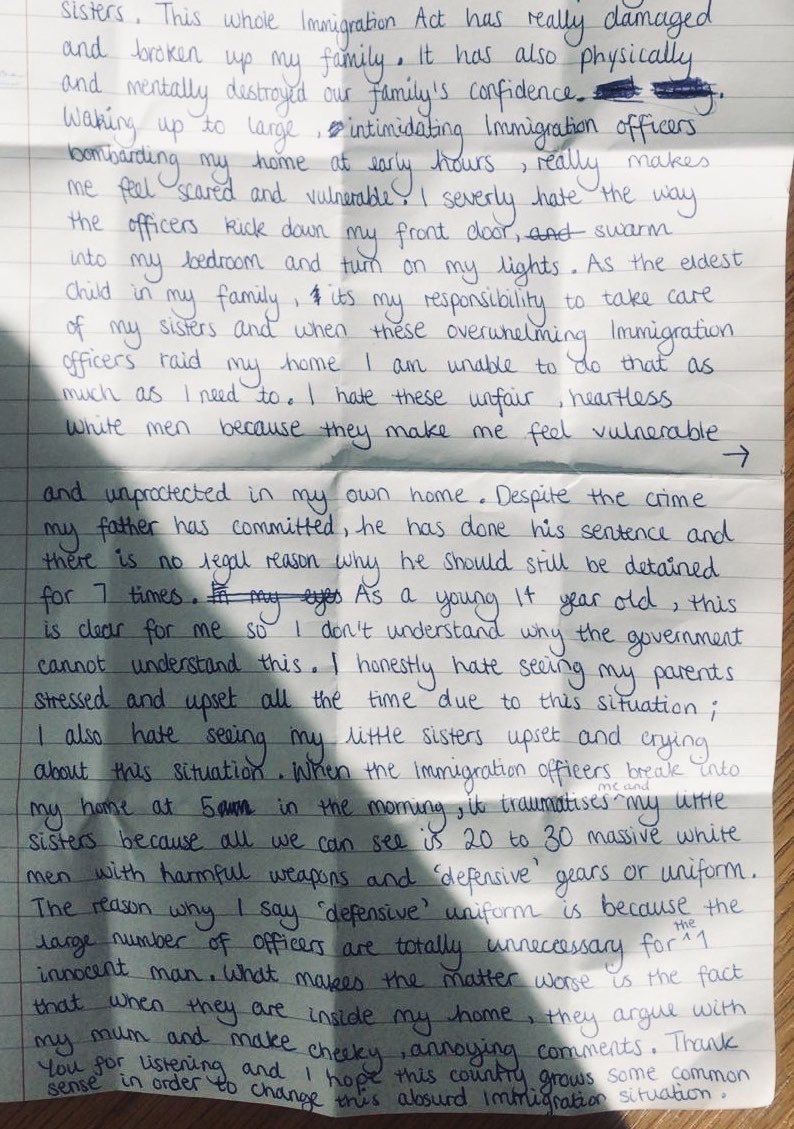 sisters. This whole Immigration Act has really damaged
and broken up my family. It has also physically
and mentally destroyed our family's confidence.
Waking up to large, intimidating Immigration officers
bombarding my home at early hours, really makes
me feel scared and vulnerable. I severly hate the way
the officers kick down my front door, and swarm
into my bedroom and turn on my lights. As the eldest
child in my family, its my responsibility to take care
of my sisters and when these overwhelming Immigration
officers raid my home I am unable to do that as
much as I need to. I hate these unfair, heartless
white men because they make me feel vulnerable
→
and unproctected in my own home. Despite the crime
my father has committed, he has done his sentence and
there is no legal reason why he should still be detained
for 7 times. In my eyes As a young 14 year old, this
is clear for me so I don't understand why the government
cannot understand this. I honestly hate seeing my parents
stressed and upset all the time due to this situation;
I also hate seeing my little sisters upset and crying
about this situation. When the Immigration officers break into
my home at 5am in the morning, it traumatises me and my little
sisters because all we can see is 20 to 30 massive white
men with harmful weapons and 'defensive' gears or uniform.
The reason why I say 'defensive' uniform is because the
large number of officers are totally unnecessary for the 1
innocent man. What makes the matter worse is the fact
that when they are inside my home, they argue with
my mum and make cheeky, annoying comments. Thank
You for listening and I hope this country grows some common
sense in order to change this absurd Immigration situation.